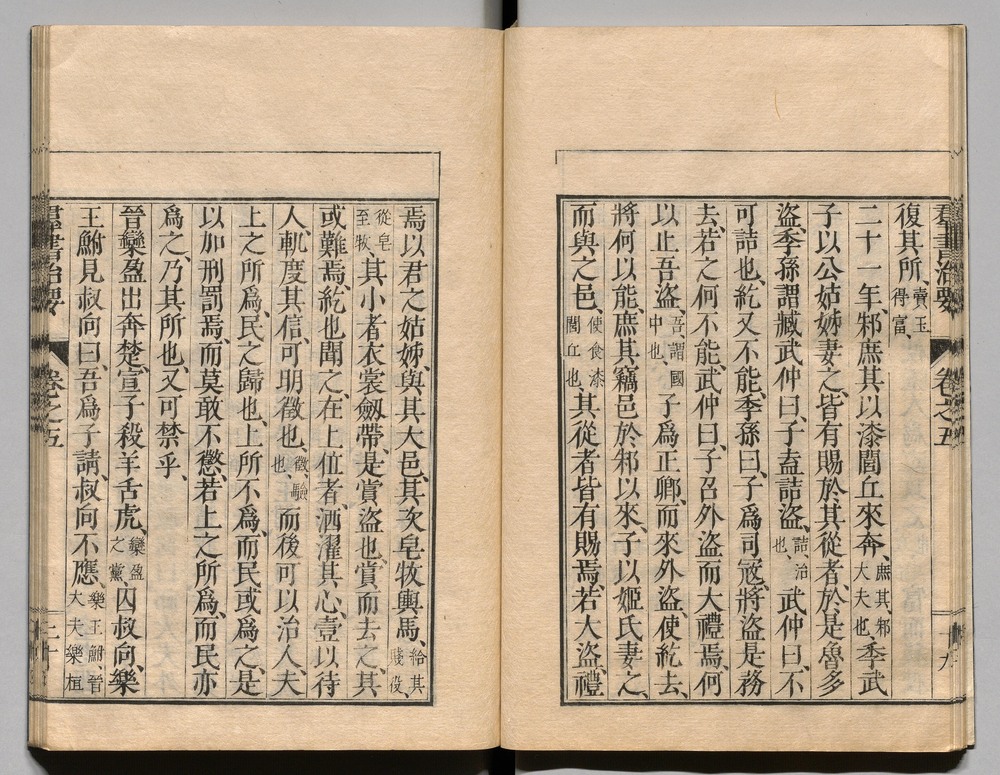 群書治要 卷之五 十九
復其所、賣玉得富、
二十一年、邾庶其、以漆閭丘來奔、庶其、邾大夫也、季武
子以公姑姊妻之、皆有賜於其從者、於是魯多
盜、季孫謂臧武仲曰、子盍詰盜、詰、治也、武仲曰、不
可詰也、紇又不能、季孫曰、子爲司寇、將盜是務
去、若之何不能、武仲曰、子召外盜而大禮焉、何
以止吾盜、吾謂國中也、子爲正卿、而來外盜、使紇去、
將何以能、庶其、竊邑於邾以來、子以姬氏妻之、
而與之邑、使食漆閭丘也、其從者皆有賜焉、若大盜、禮
焉以君之姑姊、與其大邑、其次皂牧輿馬、給其賤役、
從皂至牧、其小者衣裳劔帶、是賞盜也、賞而去之、其
或難焉、紇也聞之、在上位者、洒濯其心、壹以待
人、軌度其信、可明徵也、徵驗也、而後可以治人、夫
上之所爲、民之歸也、上所不爲、而民或爲之、是
以加刑罰焉、而莫敢不懲、若上之所爲、而民亦
爲之、乃其所也、又可禁乎、
晉欒盈出奔楚、宣子殺羊舌虎、欒盈之黨、囚叔向、樂
王鮒見叔向曰、吾爲子請、叔向不應、樂王鮒、晉大夫樂桓
群書治要 卷之五 二十